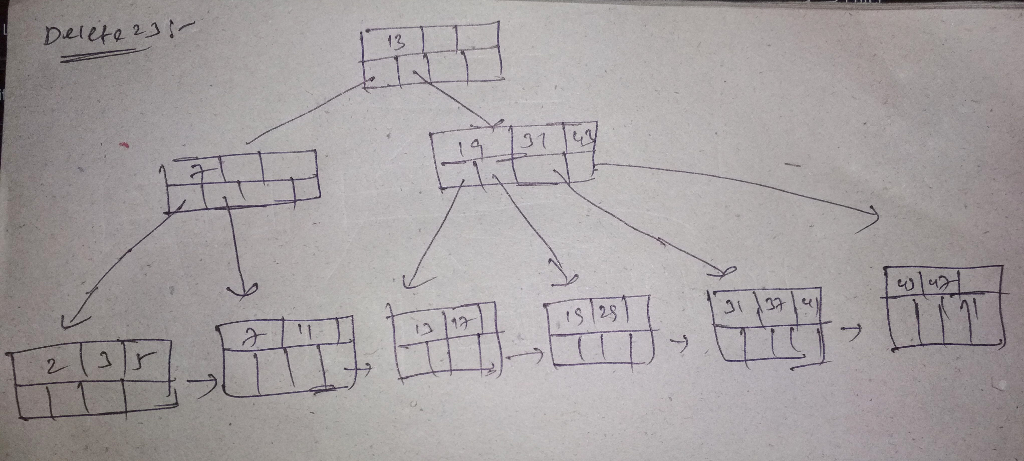 Delete 23:-
13
7
19 31 43
2 3 5
7 11
13 17
19 29
31 37 41
43 47